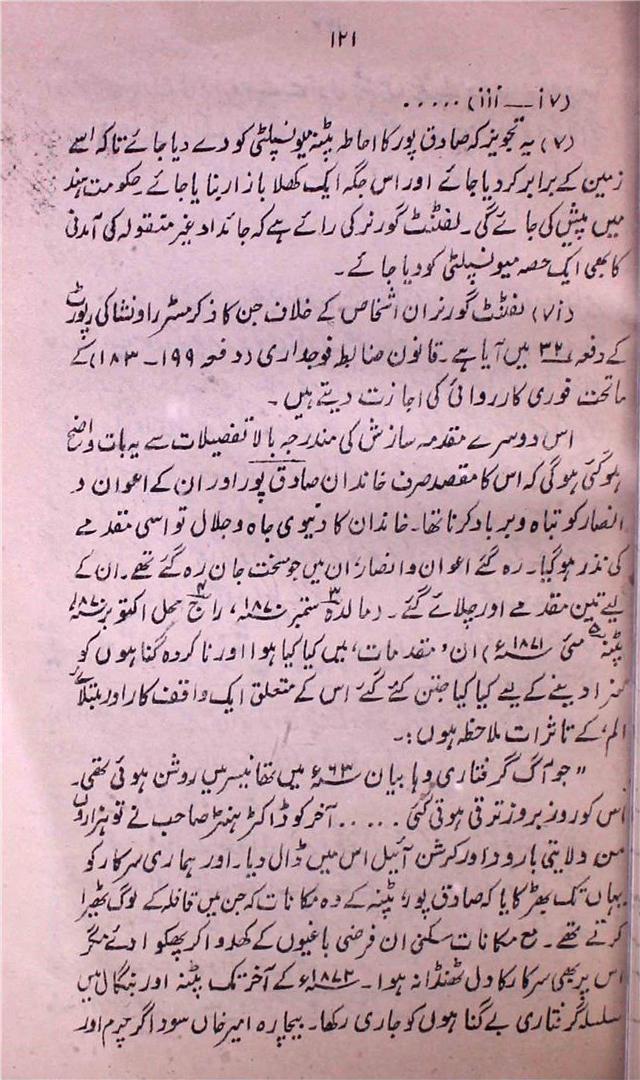 ۱۲۱
(iii — iv) .....
(v) یہ تجویز کہ صادق پور کا احاطہ پٹنہ میونسپلٹی کو دے دیا جائے تاکہ اسے
زمین کے برابر کر دیا جائے اور اس جگہ ایک کھلا بازار بنایا جائے۔ حکومت ہند
میں پیش کی جائے گی۔ لفٹنٹ گورنر کی رائے ہے کہ جائداد غیر منقولہ کی آمدنی
کا بھی ایک حصہ میونسپلٹی کو دیا جائے۔
(vi) لفٹنٹ گورنر ان اشخاص کے خلاف جن کا ذکر مسٹر راونشا کی رپورٹ
کے دفعہ ۳۲ میں آیا ہے۔ قانون ضابطہ فوجداری (دفعہ ۱۹۹۔ ۱۸۳) کے
ماتحت فوری کارروائی کی اجازت دیتے ہیں۔
اس دوسرے مقدمہ سازش کی مندرجہ بالا تفصیلات سے یہ بات واضح
ہو گئی ہوگی کہ اس کا مقصد صرف خاندان صادق پور اور ان کے اعوان و
انصار کو تباہ و برباد کرنا تھا۔ خاندان کا دنیوی جاہ و جلال تو اسی مقدمے
کی نذر ہو گیا۔ رہ گئے اعوان و انصار، ان میں جو سخت جان رہ گئے تھے۔ ان کے
لیے تین مقدمے اور چلائے گئے۔ (مالدہ ۳ ستمبر ۱۸۷۰ء، راج محل ۴ اکتوبر ۱۸۷۰ء،
پٹنہ ۵ مئی ۱۸۷۱ء) ان 'مقدمات' میں کیا کیا ہوا اور ناکردہ گناہوں کو
سزا دینے کے لیے کیا کیا جتن کئے گئے اس کے متعلق ایک واقف کار اور مبتلائے
الم، کے تاثرات ملاحظہ ہوں :۔
"جو آگ گرفتاری وہابیان ۶۳ء میں تھانیسر میں روشن ہوئی تھی۔
اس کو روز بروز ترقی ہوتی گئی ..... آخر کو ڈاکٹر ہنٹر صاحب نے تو ہزاروں
من ولایتی بارود اور کرشن آئیل اس میں ڈال دیا۔ اور ہماری سرکار کو
یہاں تک بھڑکایا کہ صادق پور پٹنہ کے وہ مکانات کہ جن میں قافلہ کے لوگ ٹھیرا
کرتے تھے۔ مع مکانات سکنی ان فرضی باغیوں کے کھدوا کر پھکوا دئے مگر
اس پر بھی سرکار کا دل ٹھنڈا نہ ہوا۔ ۱۸۷۲ء کے آخر تک پٹنہ اور بنگال میں
سلسلہ گرفتاری بے گناہوں کو جاری رکھا۔ بیچارہ امیر خاں سوداگر چرم اور